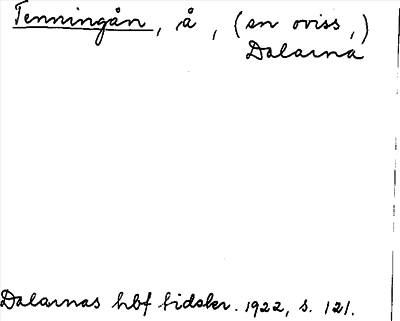 Tenningån, å, (sn oviss,)
Dalarna
Dalarnas hbf tidskr. 1922, s. 121.